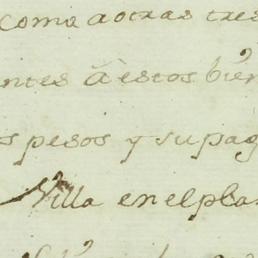 coma aotras tres
ntes â estos bien
s pesos y supag
Villa en el pla